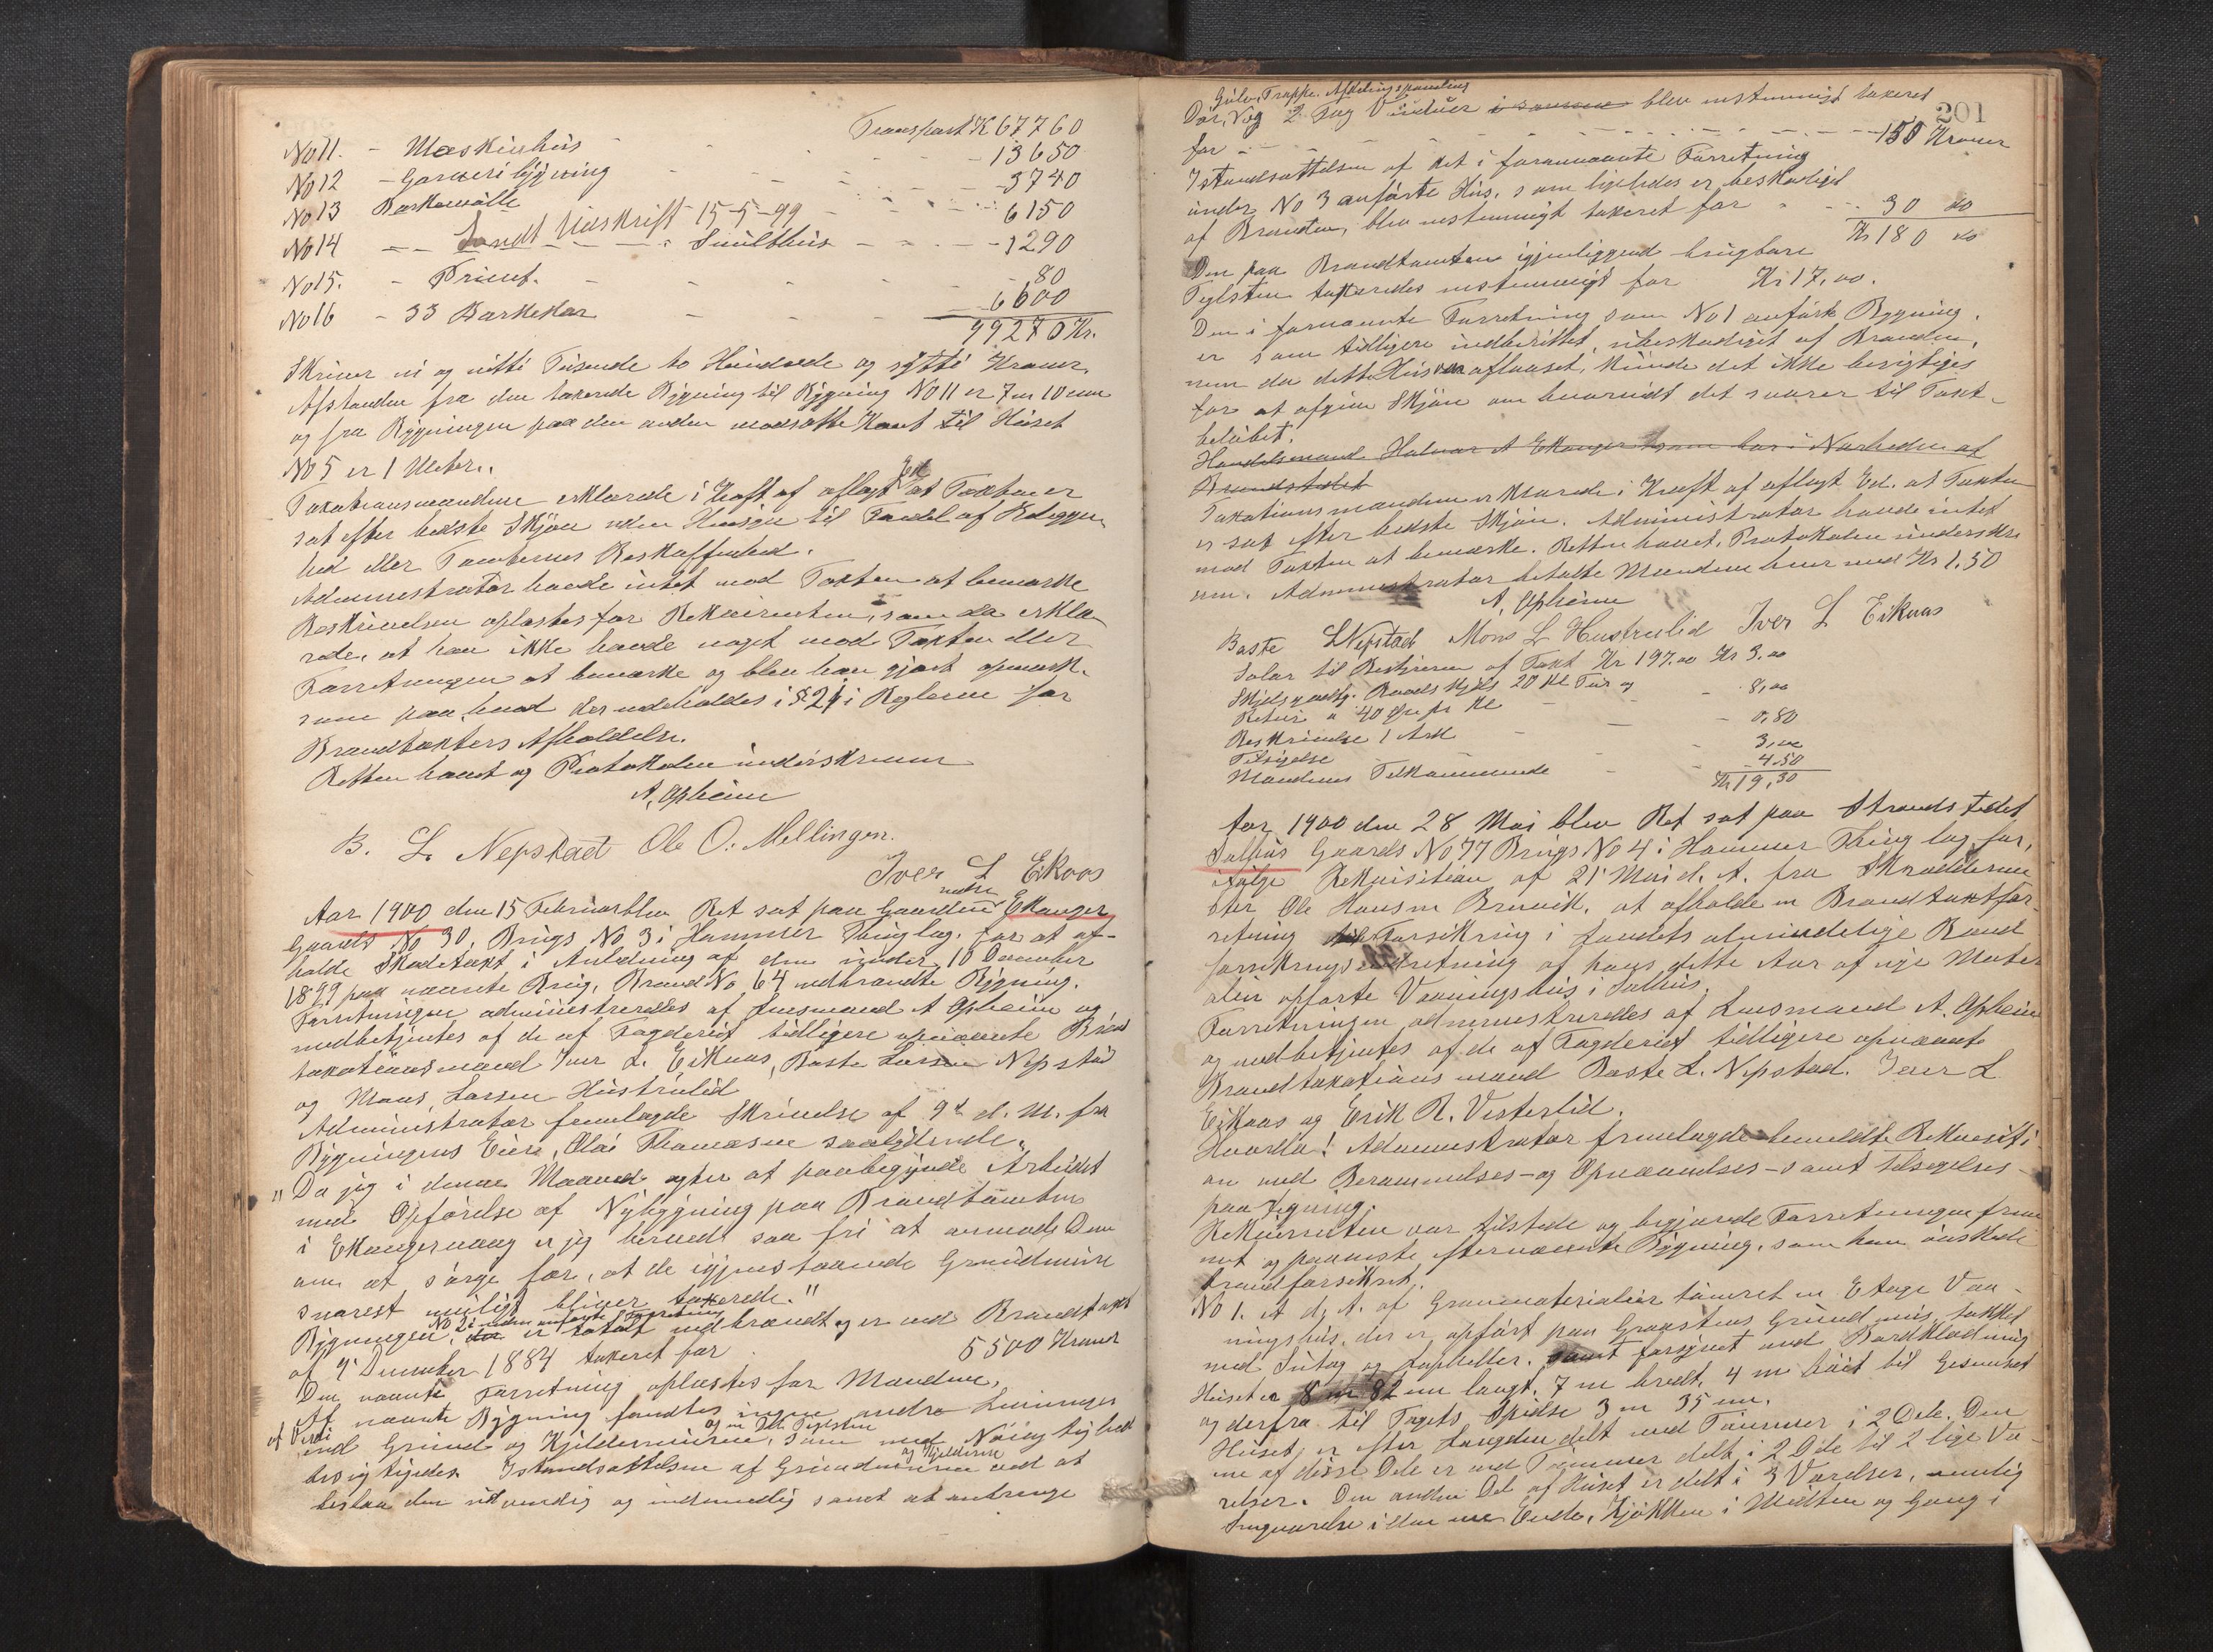 Transport K 67760
No 11. - Maskinhus - 13650
No 12 - Garveribygning - 3740
No 13 Barkemølle - 6150
Sendt Udskrift 15-5-99
No 14 - Smulthus - 1290
No 15. - Privet. - 80
No 16 - 33 Barkekar - 6600
99270 Kr.
Skriver ni og nitti Tusende to Hundrede og sytti Kroner
Afstanden fra den takserede Bygning til Bygning No 11 er 7 m 10 cm
og fra Bygningen paa den anden modsatte Kant til Huset
No 5 er 1 Meter.
Taxationsmændene erklærede i Kraft af aflagt Ed at Taxten er
sat efter bedste Skjøn uden Hensyn til Fordel af Beliggen-
hed eller Tomternes Beskaffenhed.
Administrator havde intet mod Taxten at bemærke
Beskrivelsen oplæstes for Rekvirenten, som da erklæ-
rede, at han ikke havde noget mod Taxten eller
Forretningen at bemærke og blev han gjort opmærk-
som paa, hvad der indeholdes i § 21 i Reglerne for
Brandtaxters Afholdelse.
Retten hævet og Protokolen underskreven
A. Opheim
B. L. Nepstad Ole O. Mellingen.
Iver L Eikaas
Aar 1900 den 15 Februar blev Ret sat paa Gaarden nedre Ekanger
Gaards No 30, Brugs No 3 i Hammer Thinglag, for at af-
holde Skadetaxt i Anledning af den under 10 December
1899 paa nævnte Brug, Brand No 64 nedbrændte Bygning.
Forretningen administreredes af Lensmand A Opheim og
medbetjentes af de af Fogderiet tidligere opnævnte Brand
taxationsmænd Iver L. Eikaas, Baste Larsen Nepstad
og Mons Larsen Hustrulid
Administrator fremlagde Skrivelse af 9de d. M. fra
Bygningens Eier, Olai Thomassen saalydende:
"Da jeg i denne Maaned agter at paabegynde Arbeidet
med Opførelse af Nybygning paa Brandtomten
i Ekangervaag er jeg herved saa fri at anmode Dem
om at sørge for, at de igjenstaaende Grundmure
snarest muligt bliver taxerede."
No 2 i anførte Forretning
Bygningen, er totalt nedbrændt og er ved Brandtaxt
af 4 December 1884 taxeret for 5500 Kroner
Den nævnte Forretning oplæstes for Mændene.
Af nævnte Bygning fandtes ingen andre Levninger
af Værdi og en Del Teglsten
end Grund og Kjeldermurene, som med Nøiagtighed
og Kjeldermur
besigtigedes. Istandsættelsen af Grundmuren ved at
beslaa den udvendig og indvendig samt at anbringe
201
Gulv, Trappe, Afdelingspaneling
Dør, Væg 2 Fag Vinduer i samme blev enstemmigt taxeret
for - 150 Kroner
Istandsættelsen af det i forannævnte Forretning
under No 3 anførte Hus, som ligeledes er beskadiget
af Branden, blev enstemmigt taxeret for - 30 do
Kr 180 do
Den paa Brandtomten igjenliggende brugbare
Teglsten taxeredes enstemmigt for Kr 17,00.
Den i fornævnte Forretning som No 1 anførte Bygning,
er som tidligere indberettet, ubeskadiget af Branden,
men da dette Hus var aflaaset, kunde det ikke besigtiges
for at afgive Skjøn om hvorvidt det svarer til Taxt-
beløbet.
Handelsmand Halvar A Ekanger som bor i Nærheden af
Brandstedet
Taxationsmændene erklærede i Kraft af aflagt Ed, at Taxten
er sat efter bedste Skjøn. Administrator havde intet
mod Taxten at bemærke. Retten hævet, Protokolen underskre-
ven. Administrator betalte Mændene hver med Kr 1,50
A. Opheim
Baste L Nepstad Mons L Hustrulid Iver L Eikaas
Salær til Bestyreren af Taxt Kr 197.00 Kr 3.00
Skydsgodtg. Baadskyds 20 Kl Tur og
Retur a 40 Øre pr Kl - 8,00
Beskrivelse 1 Ark - 0,80
Tilsigelse - 3,00
Mændenes Tilkommende - 4.50
Kr 19,30
Aar 1900 den 28 Mai blev Ret sat paa Strandstedet
Salhus Gaards No 77 Brugs No 4 i Hammer Thinglag for,
ifølge Rekvisition af 21 Mai d. A. fra Skræddermes-
ter Ole Hansen Brurvik, at afholde en Brandtaxtfor-
retning til Forsikring i Landets almindelige Brand
forsikringsindretning af hans dette Aar af nye Materi-
alier opførte Vaaningshus i Salhus.
Forretningen administreredes af Lensmand A. Opheim
og medbetjentes af de af Fogderiet tidligere opnævnte
Brandtaxationsmænd Baste L. Nepstad. Iver L
Eikaas og Erik R. Vesterlid.
Hvorda! Administrator fremlagde bemeldte Rekvisiti-
on med Berammelses- og Opnævnelses- samt Tilsigelses-
paategning.
Rekvirenten var tilstede og begjærede Forretningen frem-
met og paaviste efternævnte Bygning, som han ønskede
brandforsikret.
No 1. Et d. A. af Granmaterialier tømret en Etage Vaa-
ningshus, der er opført paa Graastens Grundmur, takket
med Sutag og Tagheller, samt forsynet med Bordklædning
Huset er 8 m 82 cm langt, 7 m bredt, 4 m høit til Gesimset
og derfra til Tagets Spidse 3 m 35 cm.
Huset er efter Længden delt med Tømmer i 2 Dele. Den
ene af disse Dele er ved Tømmer delt i 2 Dele til 2 lige Væ-
relser. Den anden Del af Huset er delt i 3 Værelser, nemlig
Sengeværelse i den ene Ende, Kjøkken i Midten og Gang i